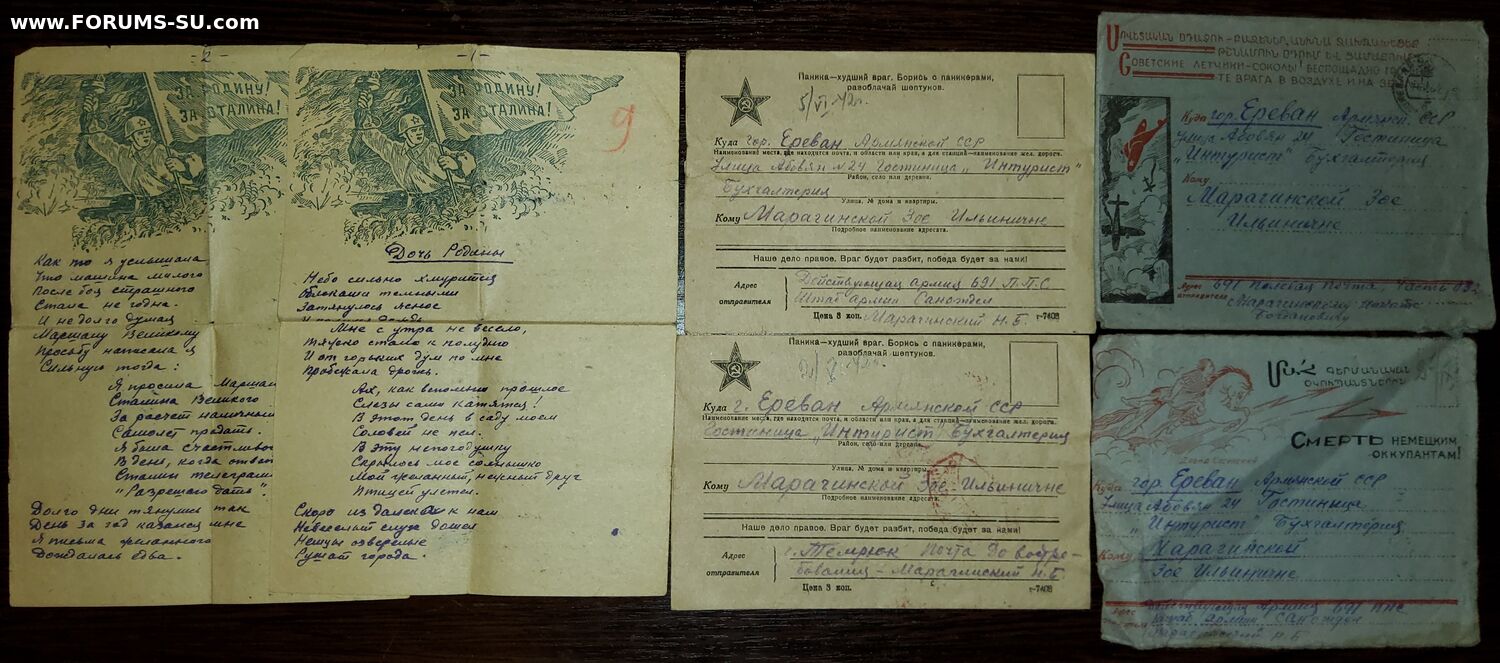 www.FORUMS-SU.com
-2-
ЗА РОДИНУ!
ЗА СТАЛИНА!
Как то я услышала
Что машина милого
После боя страшного
Стала не годна.
И не долго думая
Маршалу Великому
Просьбу написала я
Сильную тогда:
Я просила Маршал
Сталина Великого
За расчет наличный
Самолет продать.
Я была счастливо
В день, когда ответ
Сталин телеграмм
"Разрешаю дать".
Долго дни тянулись так
День за год казался мне
Я письма желанного
Дождалась едва.
-1-
ЗА РОДИНУ!
ЗА СТАЛИНА!
9
Дочь Родины
Небо сильно хмурится
Облоками темными
Затянулось ясное
Мне с утра не весело,
Тяжко стало к полудню
И от горьких дум по мне
Пробежала дрожь.
Ах, как вспомню прошлое
Слезы сами катятся!
В этот день в саду моем
Соловей не пел.
В эту непогодушку
Скрылось мое солнышко
Мой желанный, нежный друг
Птицей улетел.
Скоро из далека к нам
Невеселый слух дошел
Немцы озверелые
Сушат города.
Паника—худший враг. Борись с паникерами,
разоблачай шептунов.
5/VI-42г.
Куда гор. Ереван Армянской ССР
Наименование места, где находится почта, и области или края, а для станций—наименование жел. дорог.
Улица Абовян №24 Гостиница "Интурист"
Район, село или деревня.
Бухгалтерия
Улица, № дома и квартиры.
Кому Марагинской Зое Ильиничне
Подробное наименование адресата.
Наше дело правое. Враг будет разбит, победа будет за нами!
Адрес
отправителя
Действующая армия 691 П.П.С.
Штаб армии Санотдел
Марагинский Н.Б.
Цена 3 коп.
г-7408
Паника—худший враг. Борись с паникерами,
разоблачай шептунов.
Куда г. Ереван Армянской ССР
Наименование места, где находится почта, и области или края, а для станций—наименование жел. дорог.
Гостиница "Интурист" Бухгалтерия
Район, село или деревня.
Улица, № дома и квартиры.
Кому Марагинской Зое Ильиничне
Подробное наименование адресата.
Наше дело правое. Враг будет разбит, победа будет за нами!
Адрес
отправителя
г. Темрюк Почта До востре-
бования - Марагинский Н.Б.
Цена 3 коп.
г-7408
Советские летчики-соколы! Беспощадно
те врага в воздухе и на
Куда гор. Ереван Армянск. ССР
Улица Абовян 24 Гостиница
"Интурист" Бухгалтерия
Кому
Марагинской Зое
Ильиничне
Адрес
отправителя
691 Полевая Почта часть
Марагинскому
Богдановичу
ՄԱՀ ԳԵՐՄԱՆԱԿԱՆ
ՕԿՈՒՊԱՆՏՆԵՐԻՆ
Смерть немецким
оккупантам!
Давид Сасунский
Куда гор. Ереван Армянской ССР
Улица Абовян 24 Гостиница
"Интурист" Бухгалтерия
Кому Марагинской
Зое Ильиничне
Действующая Армия 691 ппс
Штаб армии Санотдел
Марагинский Н.Б